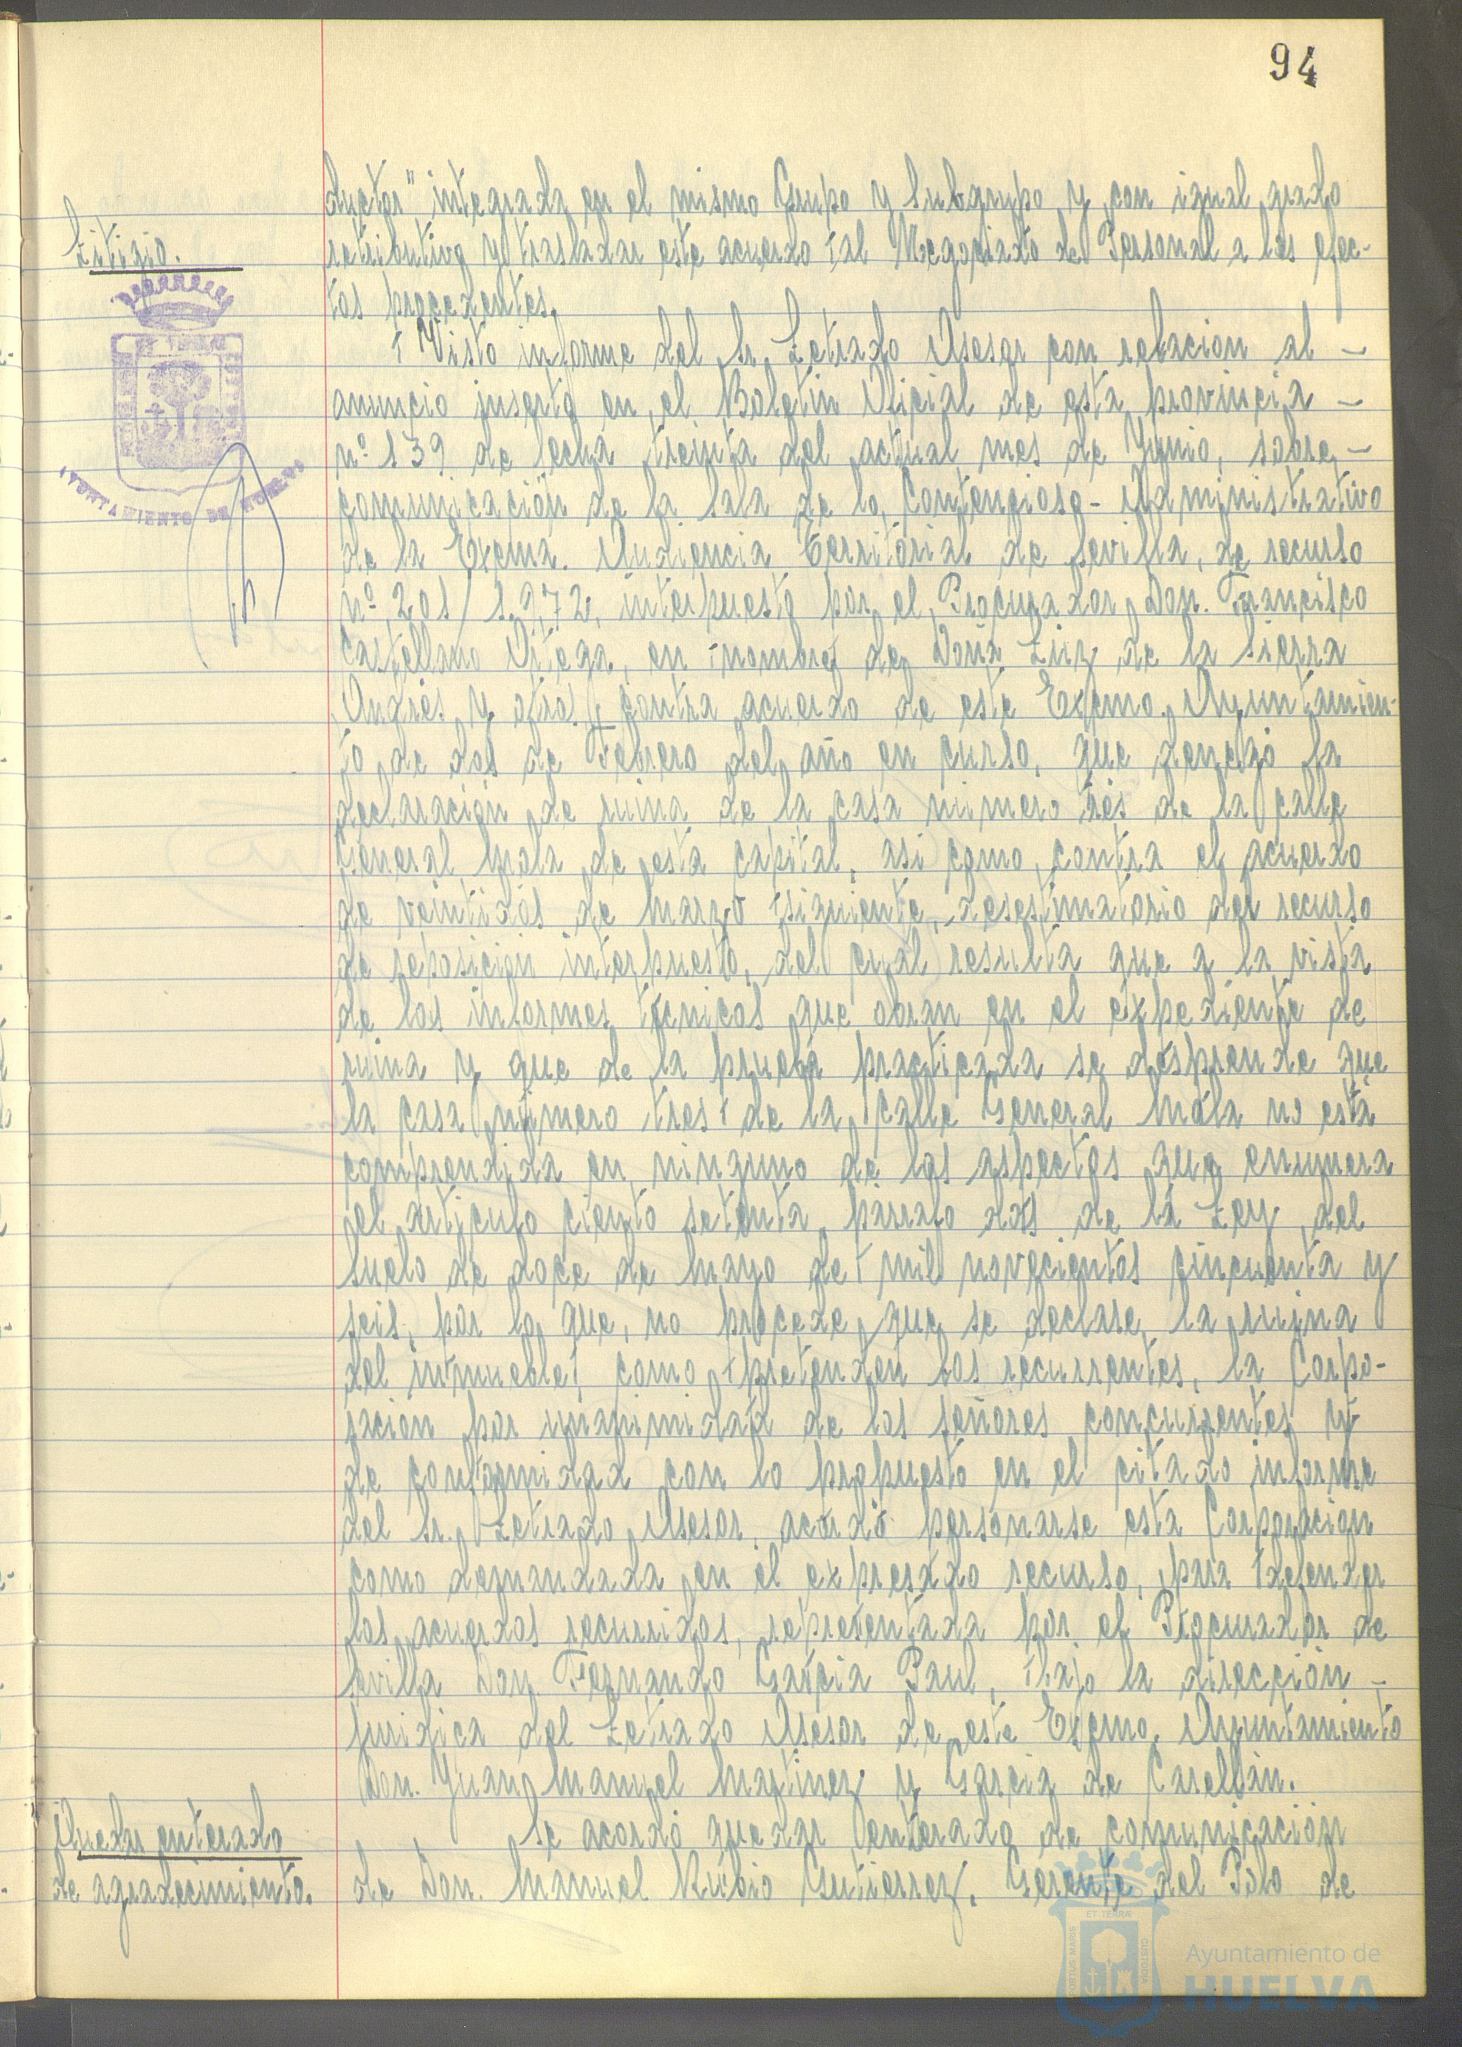 94
ductor" integrada en el mismo Grupo y Subgrupo y con igual grado
Litigio.
retributivo y trasladar este acuerdo al Negociado de Personal a los efec-
tos procedentes.
Visto informe del Sr. Letrado Asesor con relación al -
anuncio inserto en el Boletín Oficial de esta provincia -
nº 139 de fecha treinta del actual mes de Junio, sobre -
comunicación de la Sala de lo Contencioso-Administrativo
de la Excma. Audiencia Territorial de Sevilla, de recurso
nº 201/1.972, interpuesto por el Procurador Don. Francisco
Castellano Ortega, en nombre de Doña Luz de la Sierra
Andrés y otros, contra acuerdo de este Excmo. Ayuntamien-
to de dos de Febrero del año en curso, que denegó la
declaración de ruina de la casa número tres de la calle
General Mola de esta capital, así como, contra el acuerdo
de veintidós de Marzo siguiente, desestimatorio del recurso
de reposición interpuesto, del cual resulta que a la vista
de los informes técnicos que obran en el expediente de
ruina y que de la prueba practicada se desprende que
la casa número tres de la calle General Mola no está
comprendida en ninguno de los aspectos que enumera
el artículo ciento setenta, párrafo dos de la Ley del
Suelo de doce de Mayo de mil novecientos cincuenta y
seis, por lo que, no procede que se declare la ruina
del inmueble, como pretenden los recurrentes, la Corpo-
ración por unanimidad de los señores concurrentes y
de conformidad con lo propuesto en el citado informe
del Sr. Letrado Asesor, acordó personarse esta Corporación
como demandada en el expresado recurso, para defender
los acuerdos recurridos, representada por el Procurador de
Sevilla Don Fernando García Paul, bajo la dirección -
jurídica del Letrado Asesor de este Excmo. Ayuntamiento
Don. Juan Manuel Martinez y García de Carellán.
Quedar enterado
de agradecimiento.
Se acordó quedar enterado de comunicación
de Don. Manuel Rubio Gutierrez, Gerente del Polo de
AYUNTAMIENTO DE HUELVA
Ayuntamiento de
HUELVA